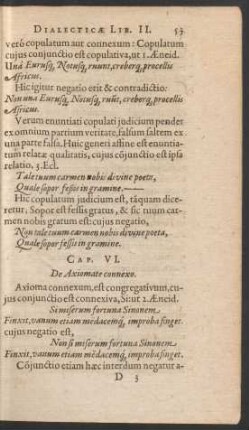 DIALECTICÆ LIB. II. 53
verò copulatum aut connexum: Copulatum
cujus conjunctio est copulativa, ut 1. Æneid.
Unà Eurusq́, Notusq́, ruunt, creberq́, procellis
Africus.
Hic igitur negatio erit & contradictio:
Non una Eurusq́, Notusq́, ruũt, creberq́, procellis
Africus.
Verum enuntiati copulati judicium pendet
ex omnium partium veritate, falsum saltem ex
una parte falsa. Huic generi affine est enuntia-
tum relatæ qualitatis, cujus cõjunctio est ipsa
relatio, 3. Ecl.
Tale tuum carmen nobis divine poeta,
Quale sopor fessis in gramine.——
Hic copulatum judicium est, tãquam dice-
retur, Sopor est fessis gratus, & sic tuum car-
men nobis gratum est: cujus negatio,
Non tale tuum carmen nobis divine poëta,
Quale sopor fessis in gramine.
CAP. VI.
De Axiomate connexo.
Axioma connexum, est congregativum, cu-
jus conjunctio est connexiva, Si: ut 2. Æneid.
Si miserum fortuna Sinonem
Finxit, vanum etiam mẽdacemq́, improba finget.
cujus negatio est,
Non si miserum fortuna Sinonem
Finxit, vanum etiam mẽdacemq́, improba finget.
Cõjunctio etiam hæc interdum negatur a-
D 3